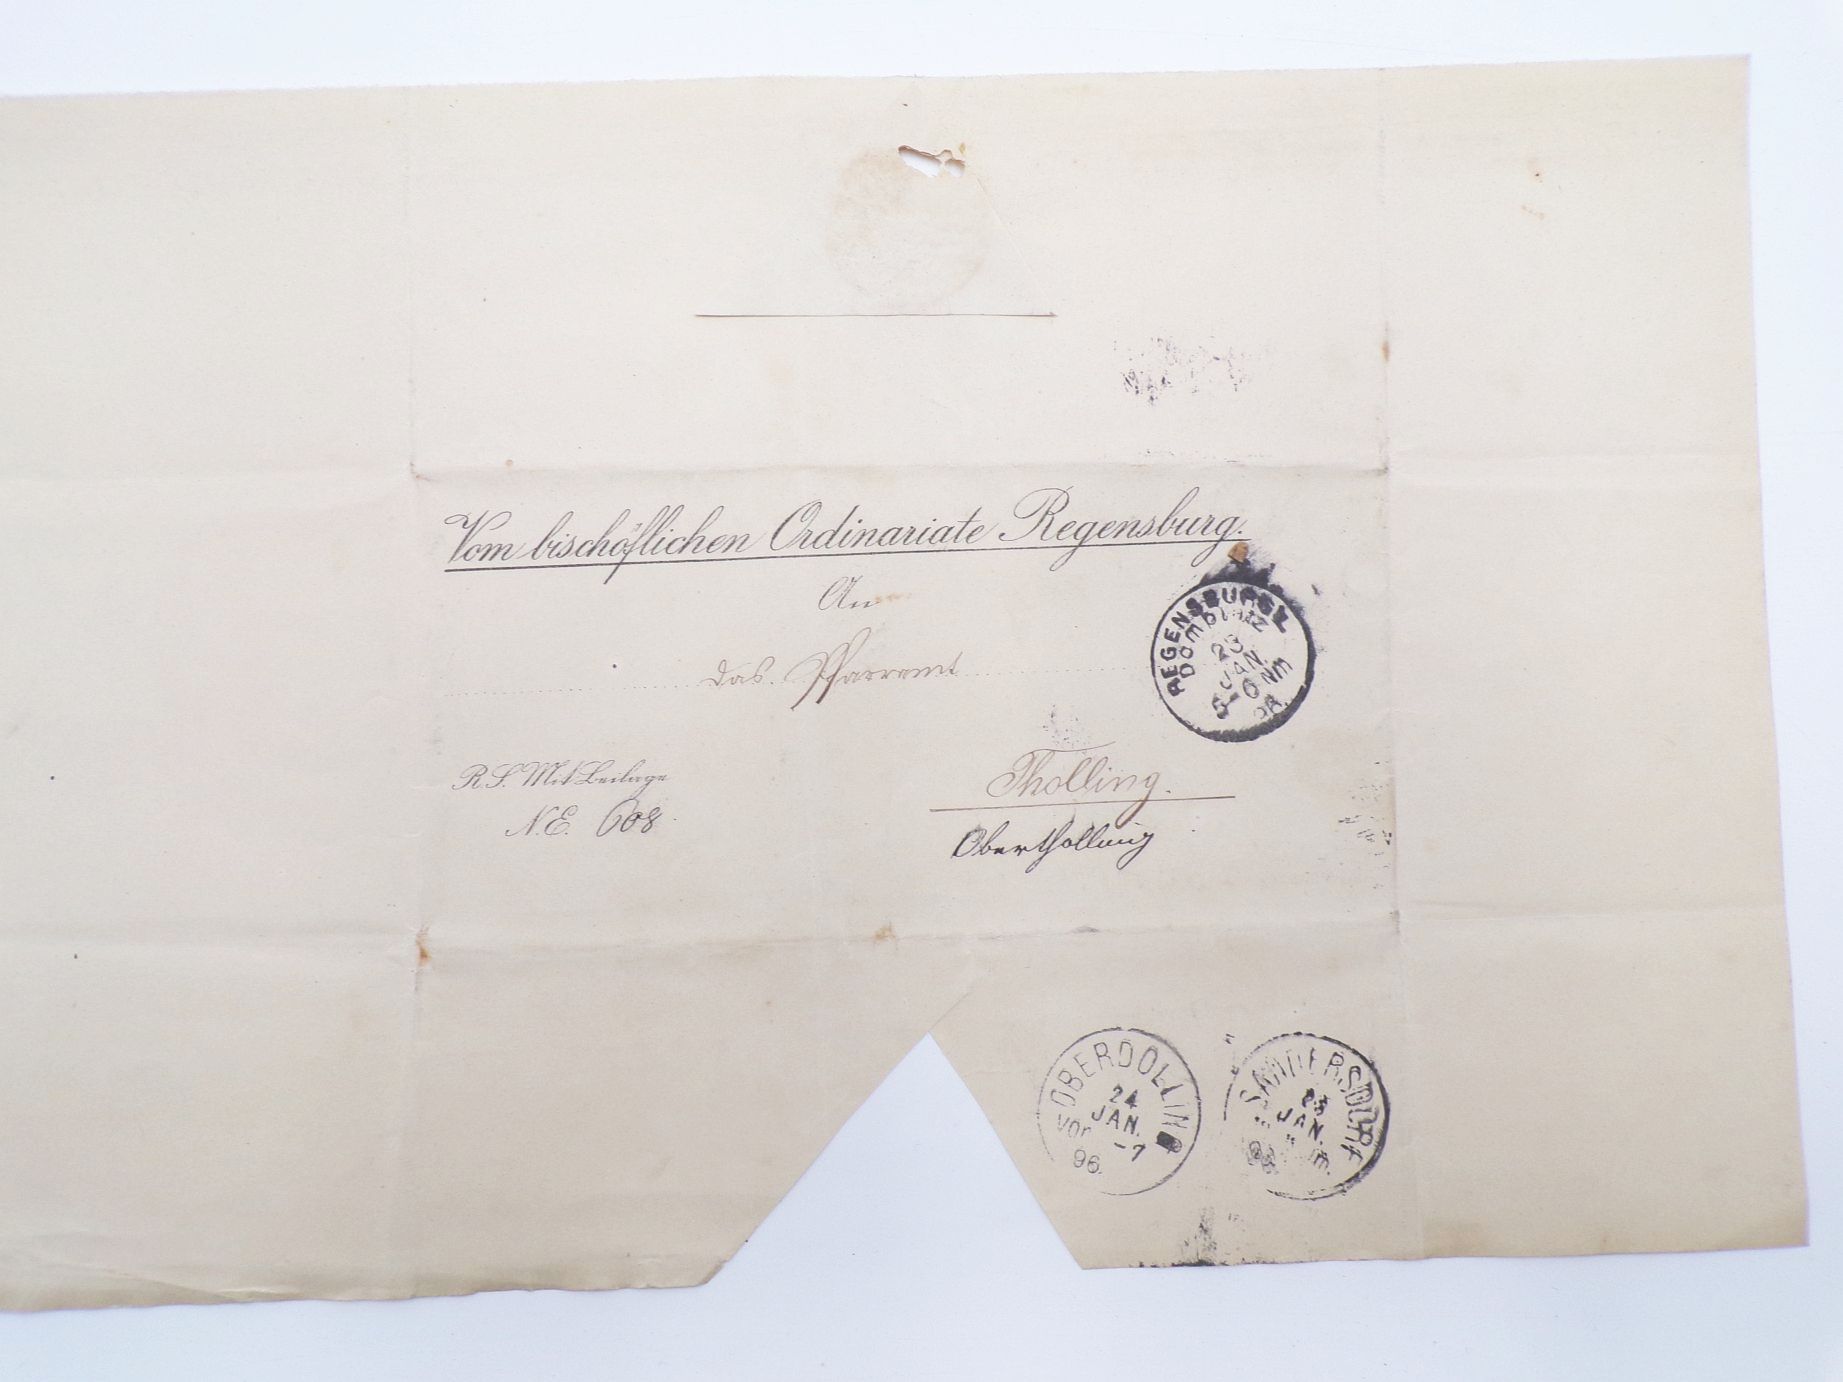 Vom bischöflichen Ordinariate Regensburg.
An
das Pfarramt
REGENSBURG
DOMPLATZ
23
JAN.
5-6 NM
R.S. Mit Beilage
N.E. 608
Tholling.
Obertholling
OBERDOLLING
24
JAN.
VOR -7
96
SANDERSDORF
23
JAN.